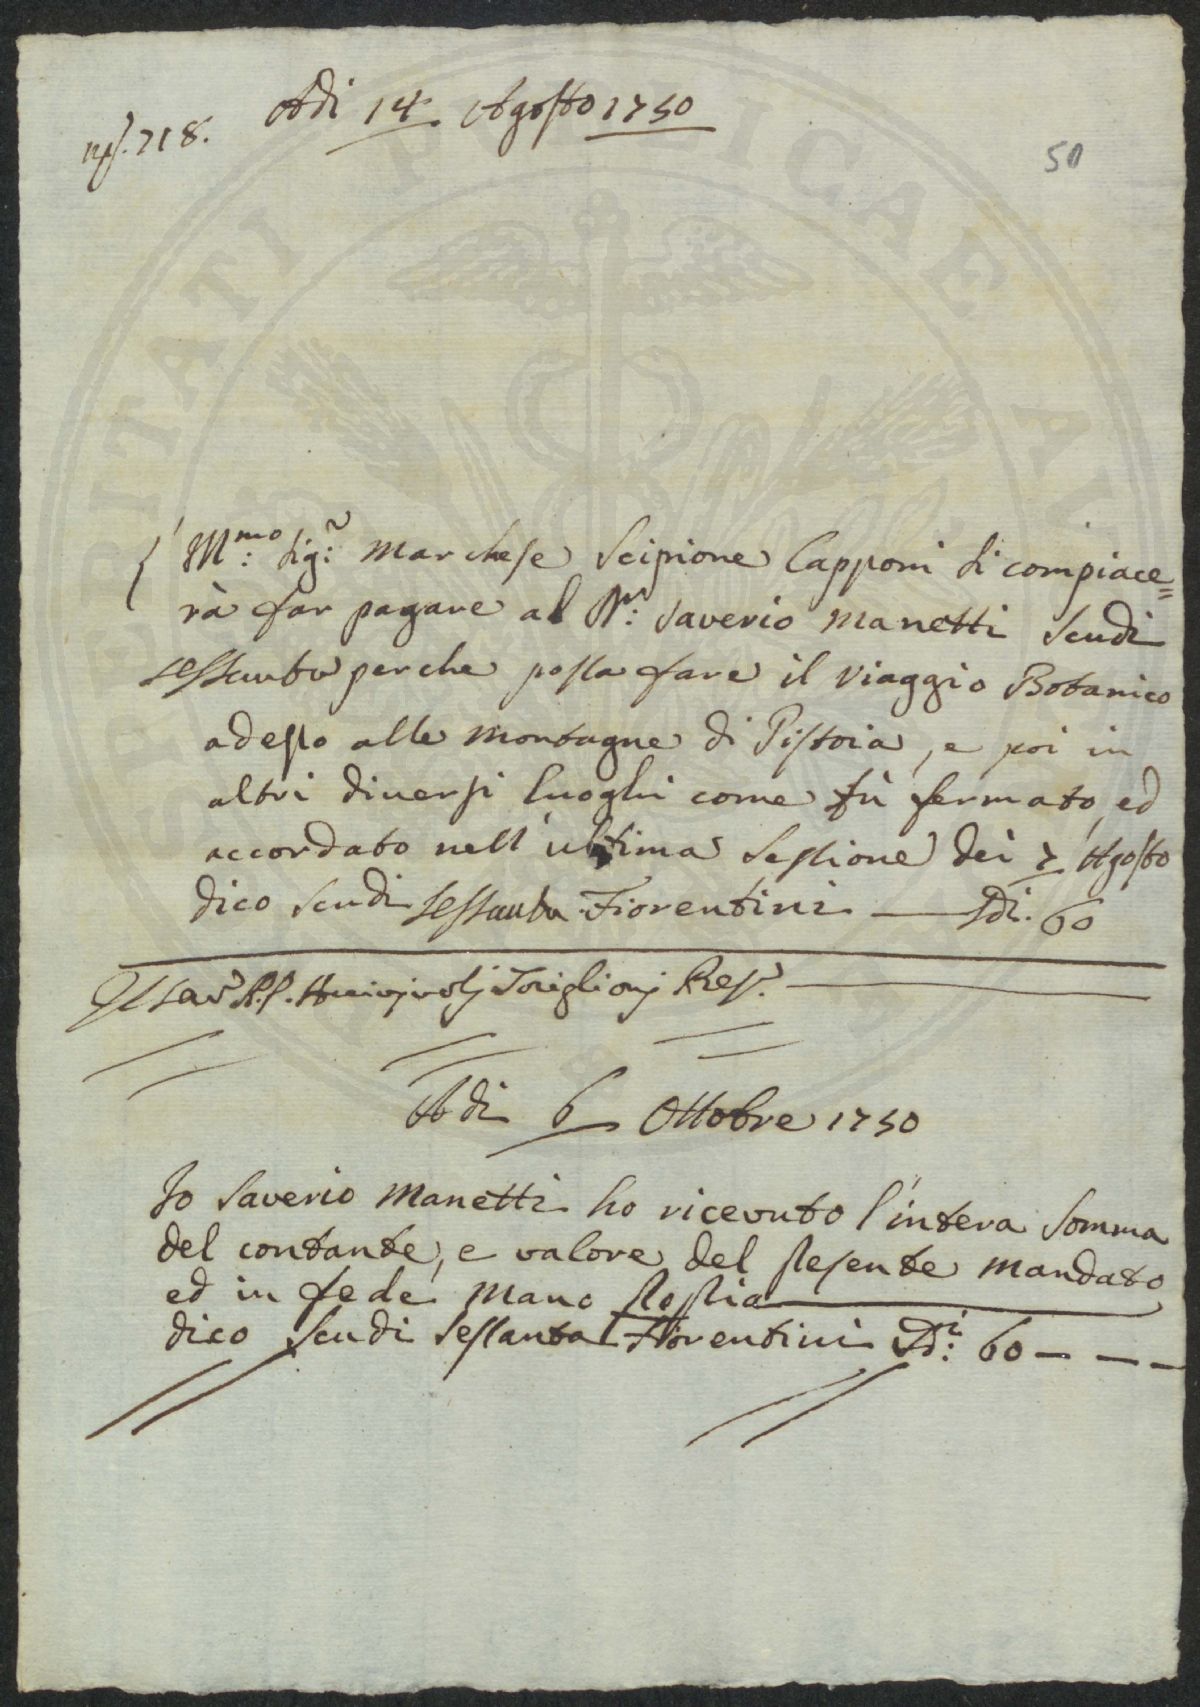 Adi 14 Agosto 1750
718.
50
Sig:r Marchese Scipione Capponi si compiace=
rà far pagare al Saverio Manetti Scudi
sessanta perche possa fare il Viaggio Botanico
adesso alle Montagne di Pistoia, e poi in
altri diversi luoghi come fù fermato, ed
accordato nell'ultima Sessione dei 7 Agosto
dico Scudi sessanta Fiorentini — Sdi. 60
Adi 6 Ottobre 1750
Io Saverio Manetti ho ricevuto l'intera Somma
del contante, e valore del presente Mandato
ed in fede Mano propria
dico Scudi Sessanta Fiorentini Sdi: 60 — — —
PUBLICAE